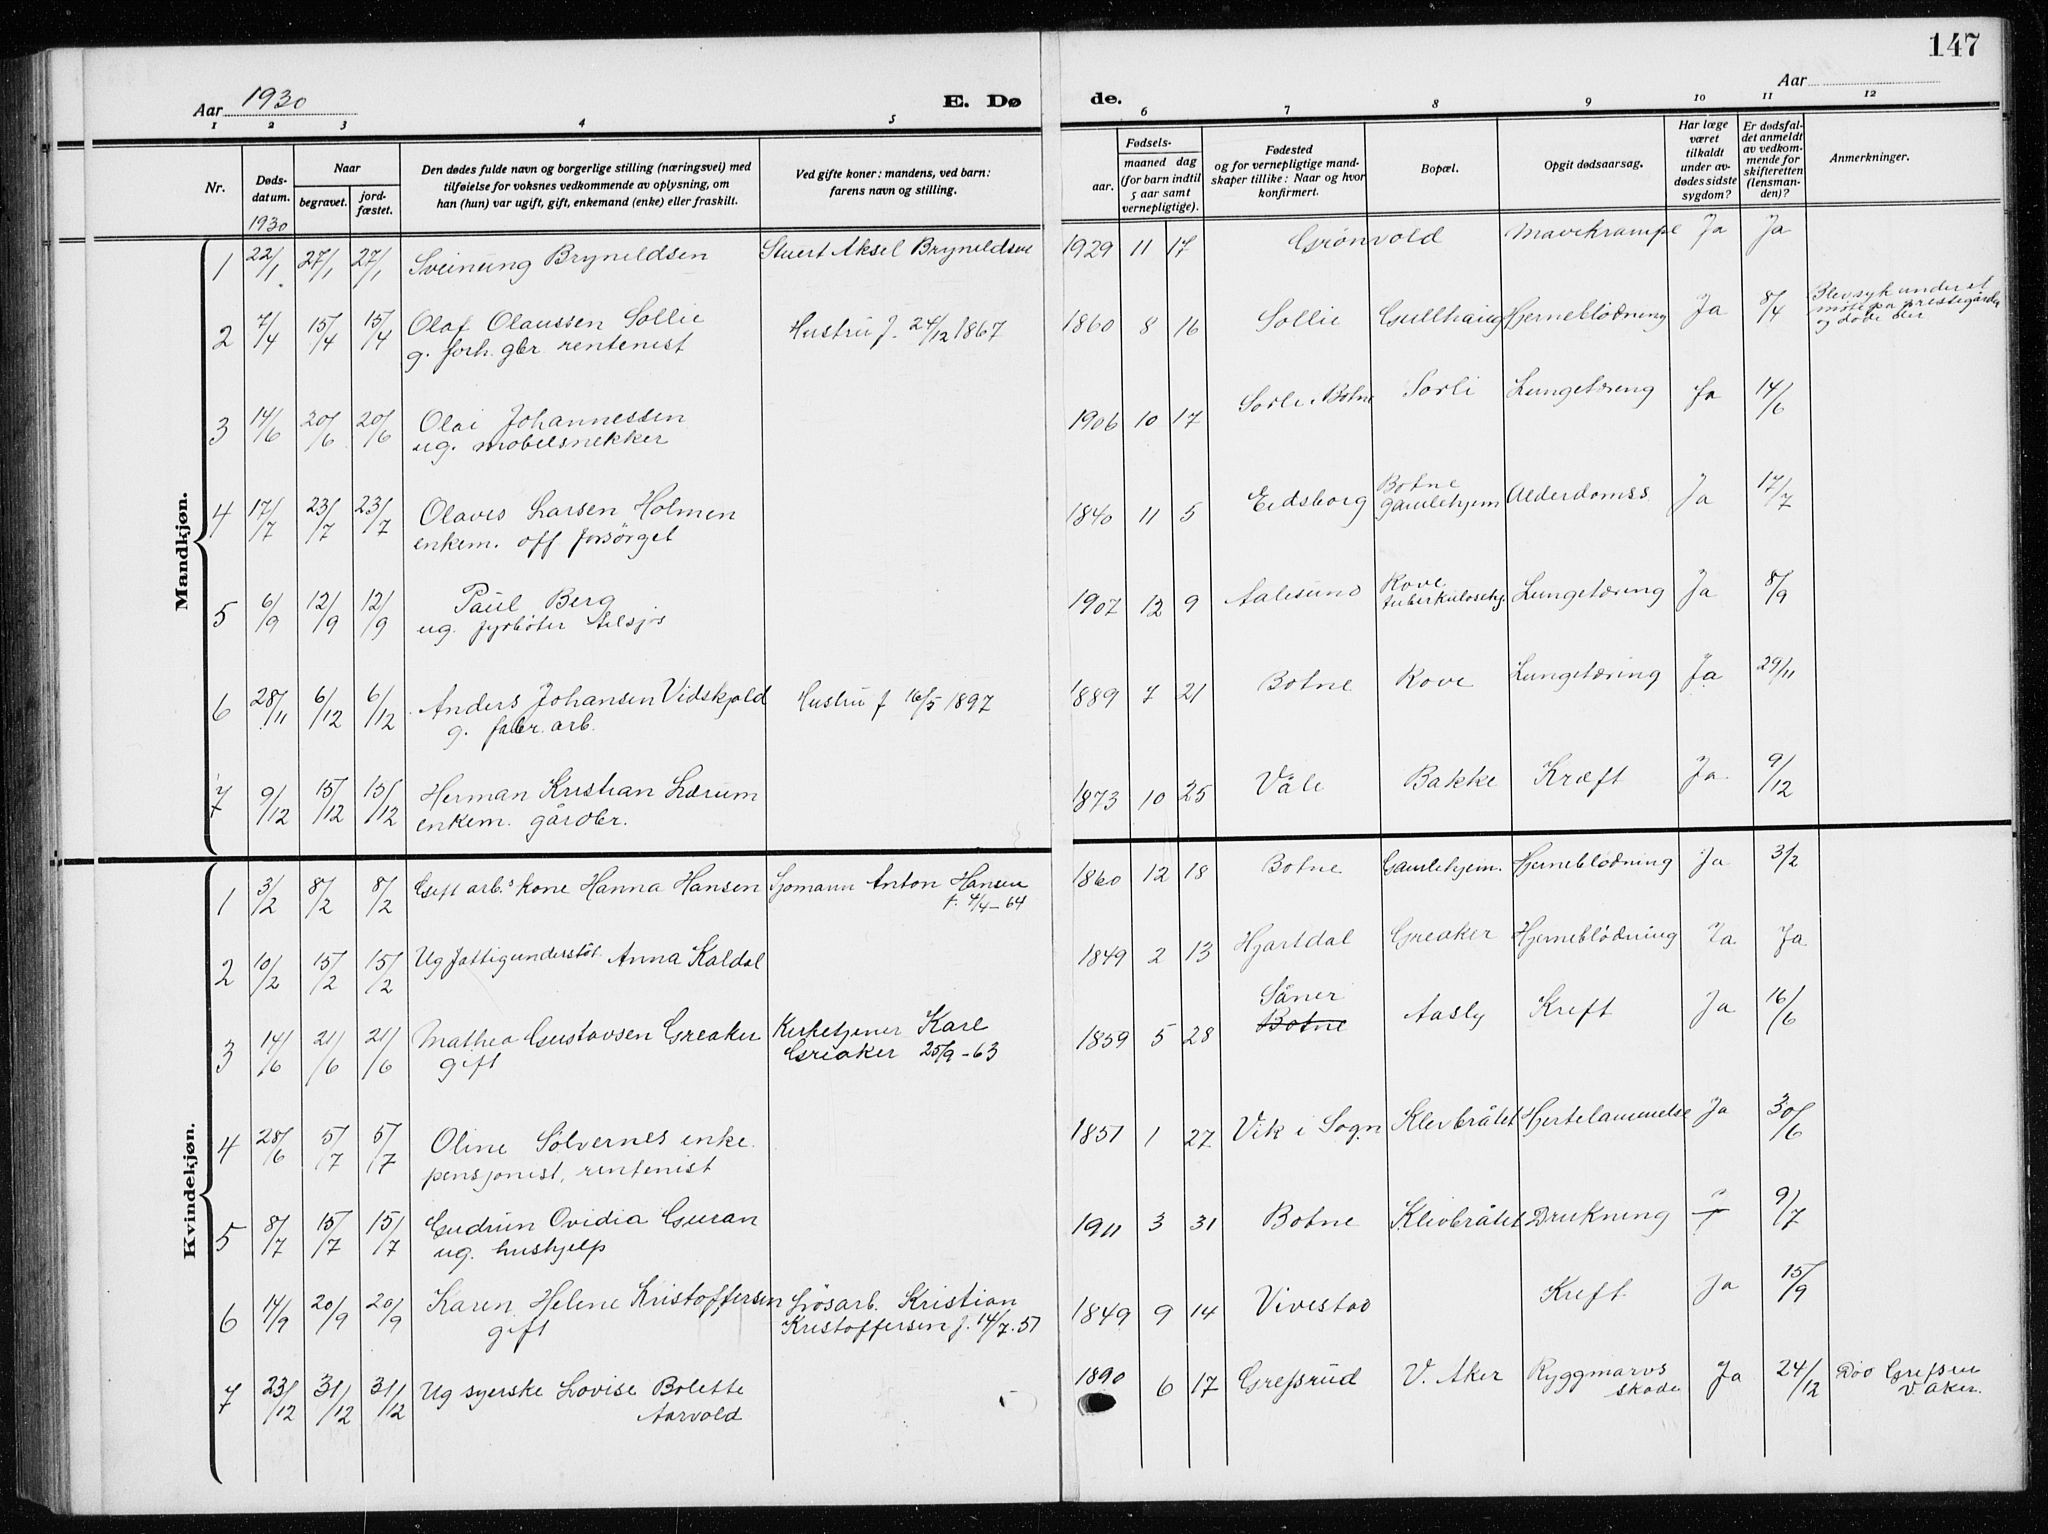 147
Aar 1930
E. Dø de.
Aar
1 2 3 4 5 6 7 8 9 10 11 12
Nr.
Døds-
datum.
Naar
begravet.
jord-
fæstet.
Den dødes fulde navn og borgerlige stilling (næringsvei) med
tilføielse for voksnes vedkommende av oplysning, om
han (hun) var ugift, gift, enkemand (enke) eller fraskilt.
Ved gifte koner: mandens, ved barn:
farens navn og stilling.
Fødsels-
aar.
maaned dag
(for barn indtil
5 aar samt
vernepligtige).
Fødested
og for vernepligtige mand-
skaper tillike: Naar og hvor
konfirmert.
Bopæl.
Opgit dødsaarsag.
Har læge
været
tilkaldt
under av-
dødes sidste
sygdom?
Er dødsfal-
det anmeldt
av vedkom-
mende for
skifteretten
(lensman-
den)?
Anmerkninger.
1930
Mandkjøn.
1 22/1 27/1 27/1 Sveinung Bryneldsen Stuert Aksel Bryneldsen 1929 11 17 Grönvold Mavekrampe Ja Ja
2 7/4 15/4 15/4 Olaf Olaussen Sollie Hustru f. 24/12 1867 1860 8 16 Sollie Gullhaug Hjerneblödning Ja 8/4 Blev syk under et
møte på prestegården
og døde der
g. forh. gbr. rentenist
3 14/6 20/6 20/6 Olai Johannessen 1906 10 17 Sorli Botne Sorli Lungetæring Ja 14/6
ug. møbelsnekker
4 17/7 23/7 23/7 Olaves Larsen Holmen 1840 11 5 Eidsborg Botne
gamlehjem Alderdomss. Ja 17/7
enkem. off forsörget
5 6/9 12/9 12/9 Paul Berg 1907 12 9 Aalesund Rove
tuberkulosehj. Lungetæring Ja 8/9
ug. fyrbøter
6 28/11 6/12 6/12 Anders Johansen Vidskjold Hustru f 16/5 1897 1889 7 21 Botne Rove Lungetæring Ja 29/11
g. fabr. arb.
7 9/12 15/12 15/12 Herman Kristian Lærum 1873 10 25 Våle Bakke Kræft Ja 9/12
enkem. gårdbr.
Kvindekjøn.
1 3/2 8/2 8/2 Gift arb.s kone Hanna Hansen Sjømann Anton Hansen 1860 12 18 Botne Gamlehjem. Hjerneblödning Ja 3/2
f. 4/4-64
2 10/2 15/2 15/2 Ug fattigunderstöt. Anna Kaldal 1849 2 13 Hjartdal Greaker Hjerneblödning Ja Ja
3 14/6 21/6 21/6 Mathea Gustavsen Greaker Kirketjener Karl 1859 5 28 Såner
Botne Aasly Kreft Ja 16/6
gift Greaker 25/9-63
4 28/6 5/7 5/7 Oline Sölvernes enke. 1851 1 27 Vik i Sogn Klevbråtet Hjertelammelse Ja 30/6
pensjonist, rentenist
5 8/7 15/7 15/7 Gudrun Ovidia Guran 1911 3 31 Botne Klevbråtet Drukning ? 9/7
ug. hushjelp
6 14/9 20/9 20/9 Karen Helene Kristoffersen Løsarb. Kristian 1849 9 14 Vivestad Kreft Ja 15/9
gift Kristoffersen f. 14/7.51
7 23/12 31/12 31/12 Ug syerske Lovise Bolette 1890 6 17 Grefsrud V. Aker Ryggmarvs
skade Ja 24/12 Död Grefsen
V Aker.
Aarvold